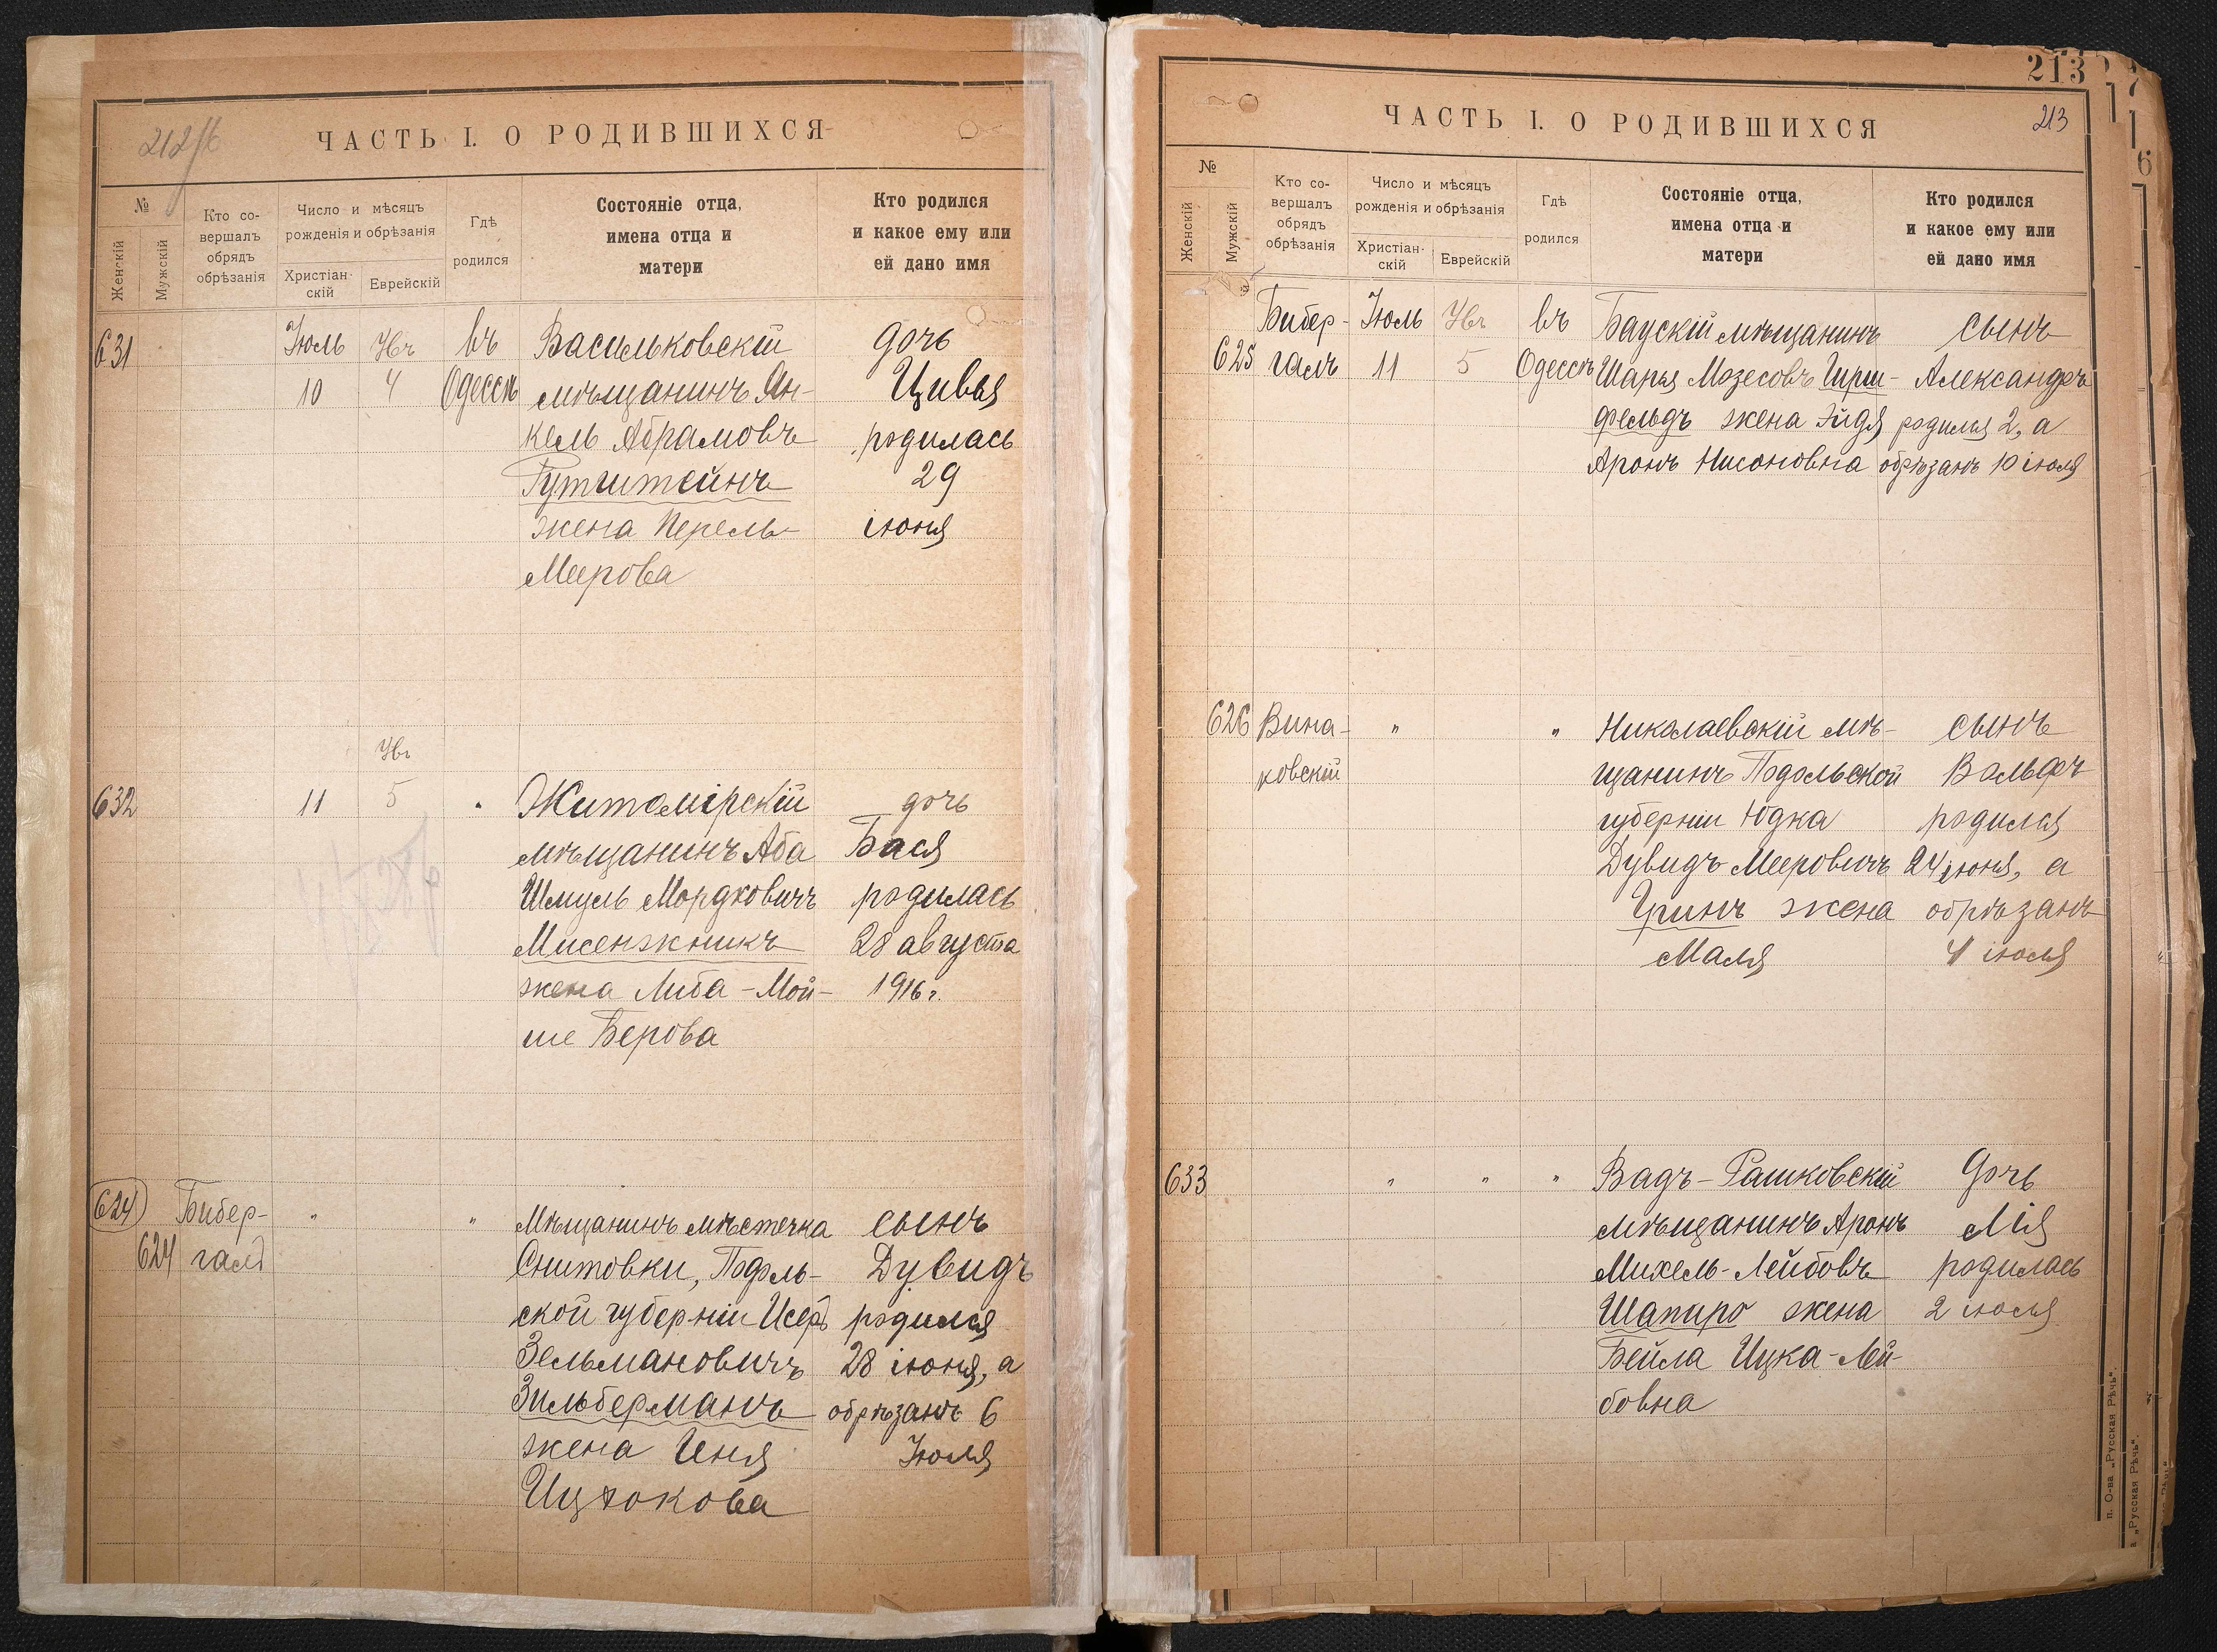 212 об
ЧАСТЬ I. О РОДИВШИХСЯ
№
Женскій
Мужскій
Кто со-
вершалъ
обрядъ
обрѣзанія
Число и мѣсяцъ
рожденія и обрѣзанія
Христіан-
скій
Еврейскій
Гдѣ
родился
Состояніе отца,
имена отца и
матери
Кто родился
и какое ему или
ей дано имя
631
Іюль
10
4
въ
Одессѣ
Васильковскій
мѣщанинъ Ян-
кель Абрамовъ
Гутштейнъ
жена Перель
Меерова
дочь
Цивья
родилась
29
іюня
632
11
5
"
Житомірскій
мѣщанинъ Аба
Шмуль Мордковичъ
Мисенжникъ
жена Либа-Мой-
ше Берова
дочь
Бася
родилась
28 августа
1916 г.
624
624
Бибер-
галъ
"
"
Мѣщанинъ мѣстечка
Снитовки, Подоль-
ской губерніи Исеръ
Зельмановичъ
Зильберманъ
жена Иня
Ицкокова
сынъ
Дувидъ
родился
28 іюня, а
обрѣзанъ 6
Іюля
213
213
ЧАСТЬ I. О РОДИВШИХСЯ
№
Женскій
Мужскій
Кто со-
вершалъ
обрядъ
обрѣзанія
Число и мѣсяцъ
рожденія и обрѣзанія
Христіан-
скій
Еврейскій
Гдѣ
родился
Состояніе отца,
имена отца и
матери
Кто родился
и какое ему или
ей дано имя
625
Бибер-
галъ
Іюль
11
5
въ
Одессѣ
Баускій мѣщанинъ
Шапя Мозесовъ Гирш-
фельдъ жена Эйдя
Аронъ Нисоновна
сынъ
Александръ
родился 2, а
обрѣзанъ 10 іюля
626
Вина-
ковскій
"
"
Николаевскій мѣ-
щанинъ Подольской
губерніи Юдка
Дувидъ Мееровичъ
Гринъ жена
Маля
сынъ
Вольфъ
родился
24 іюня, а
обрѣзанъ
4 іюля
633
"
"
"
Вадъ-Рашковскій
мѣщанинъ Аронъ
Михель-Лейбовъ
Шапиро жена
Бейла Ицка-Лей-
бовна
Дочь
Мія
родилась
2 іюля
п. О-ва „Русская Рѣчь“.
„Русская Рѣчь“.